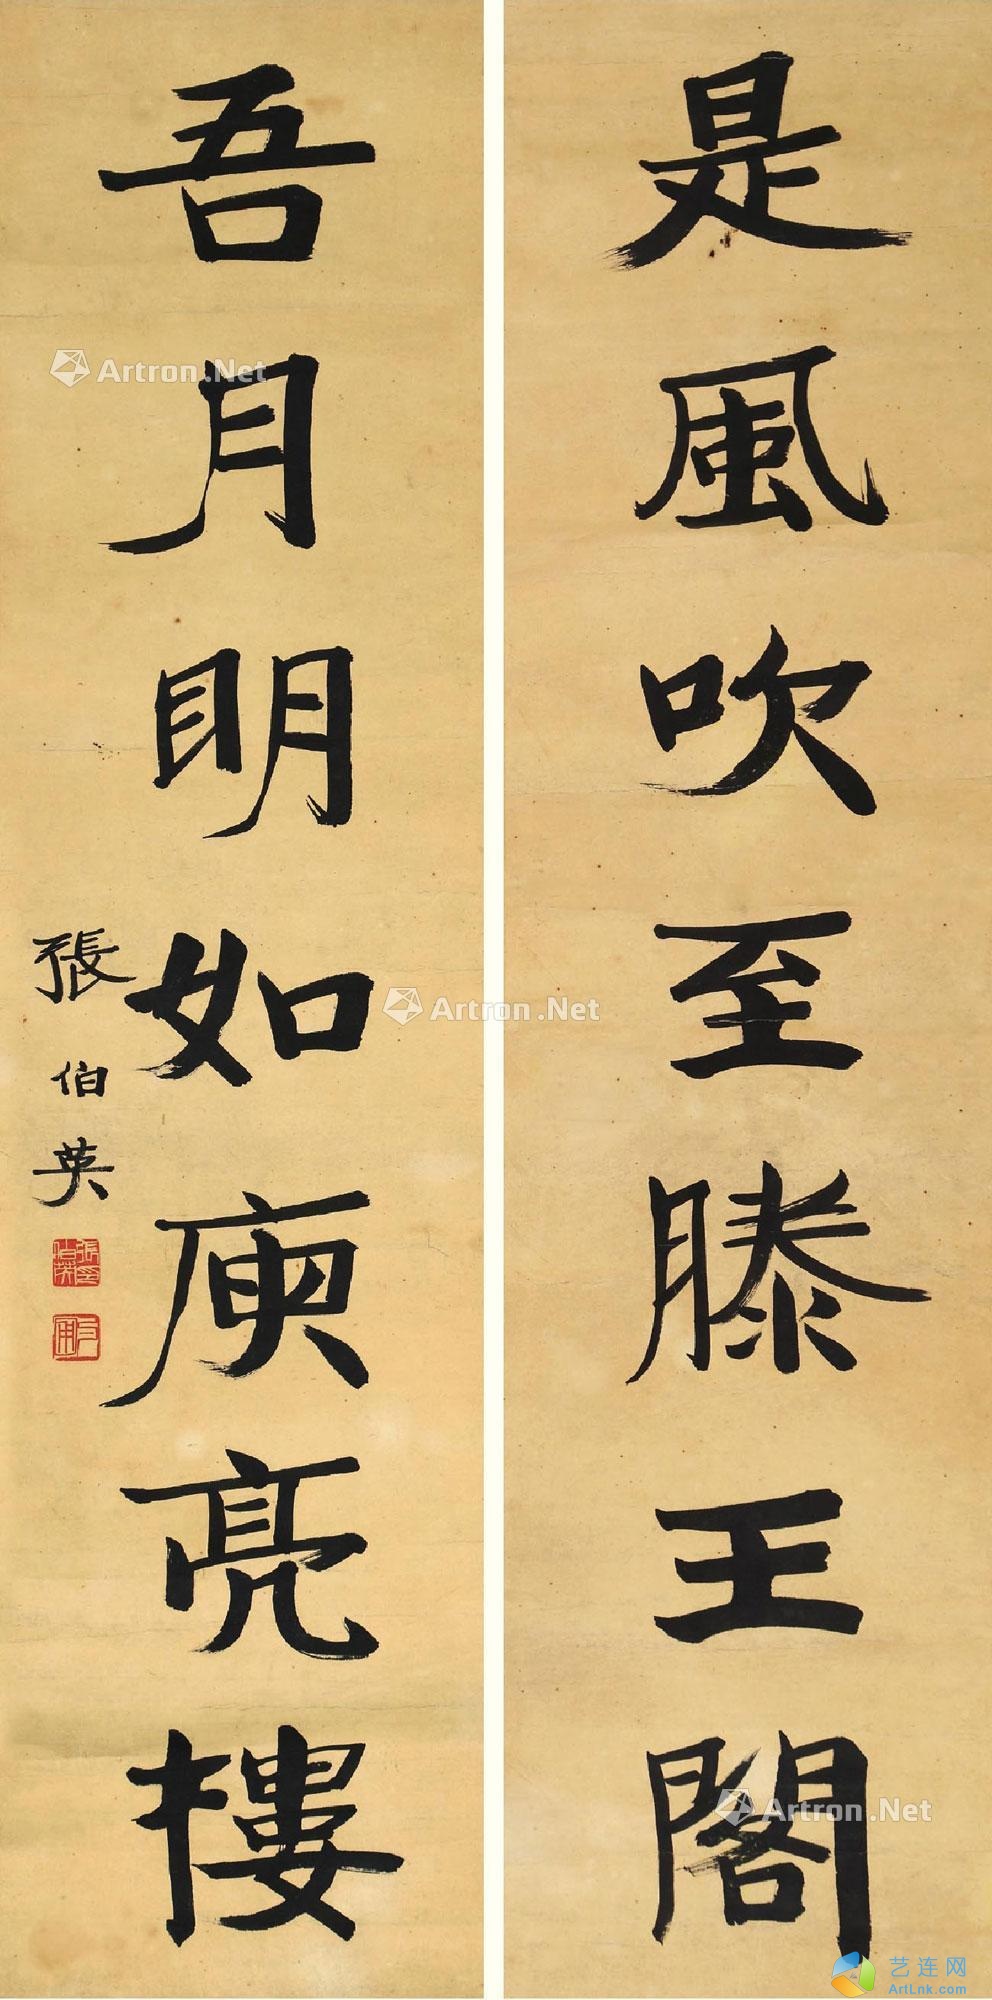 是風吹至滕王閣
吾月明如庾亮樓
張伯英
張伯英印
Artron.Net
Artron.Net
Artron.Net
艺连网
ArtLnk.com